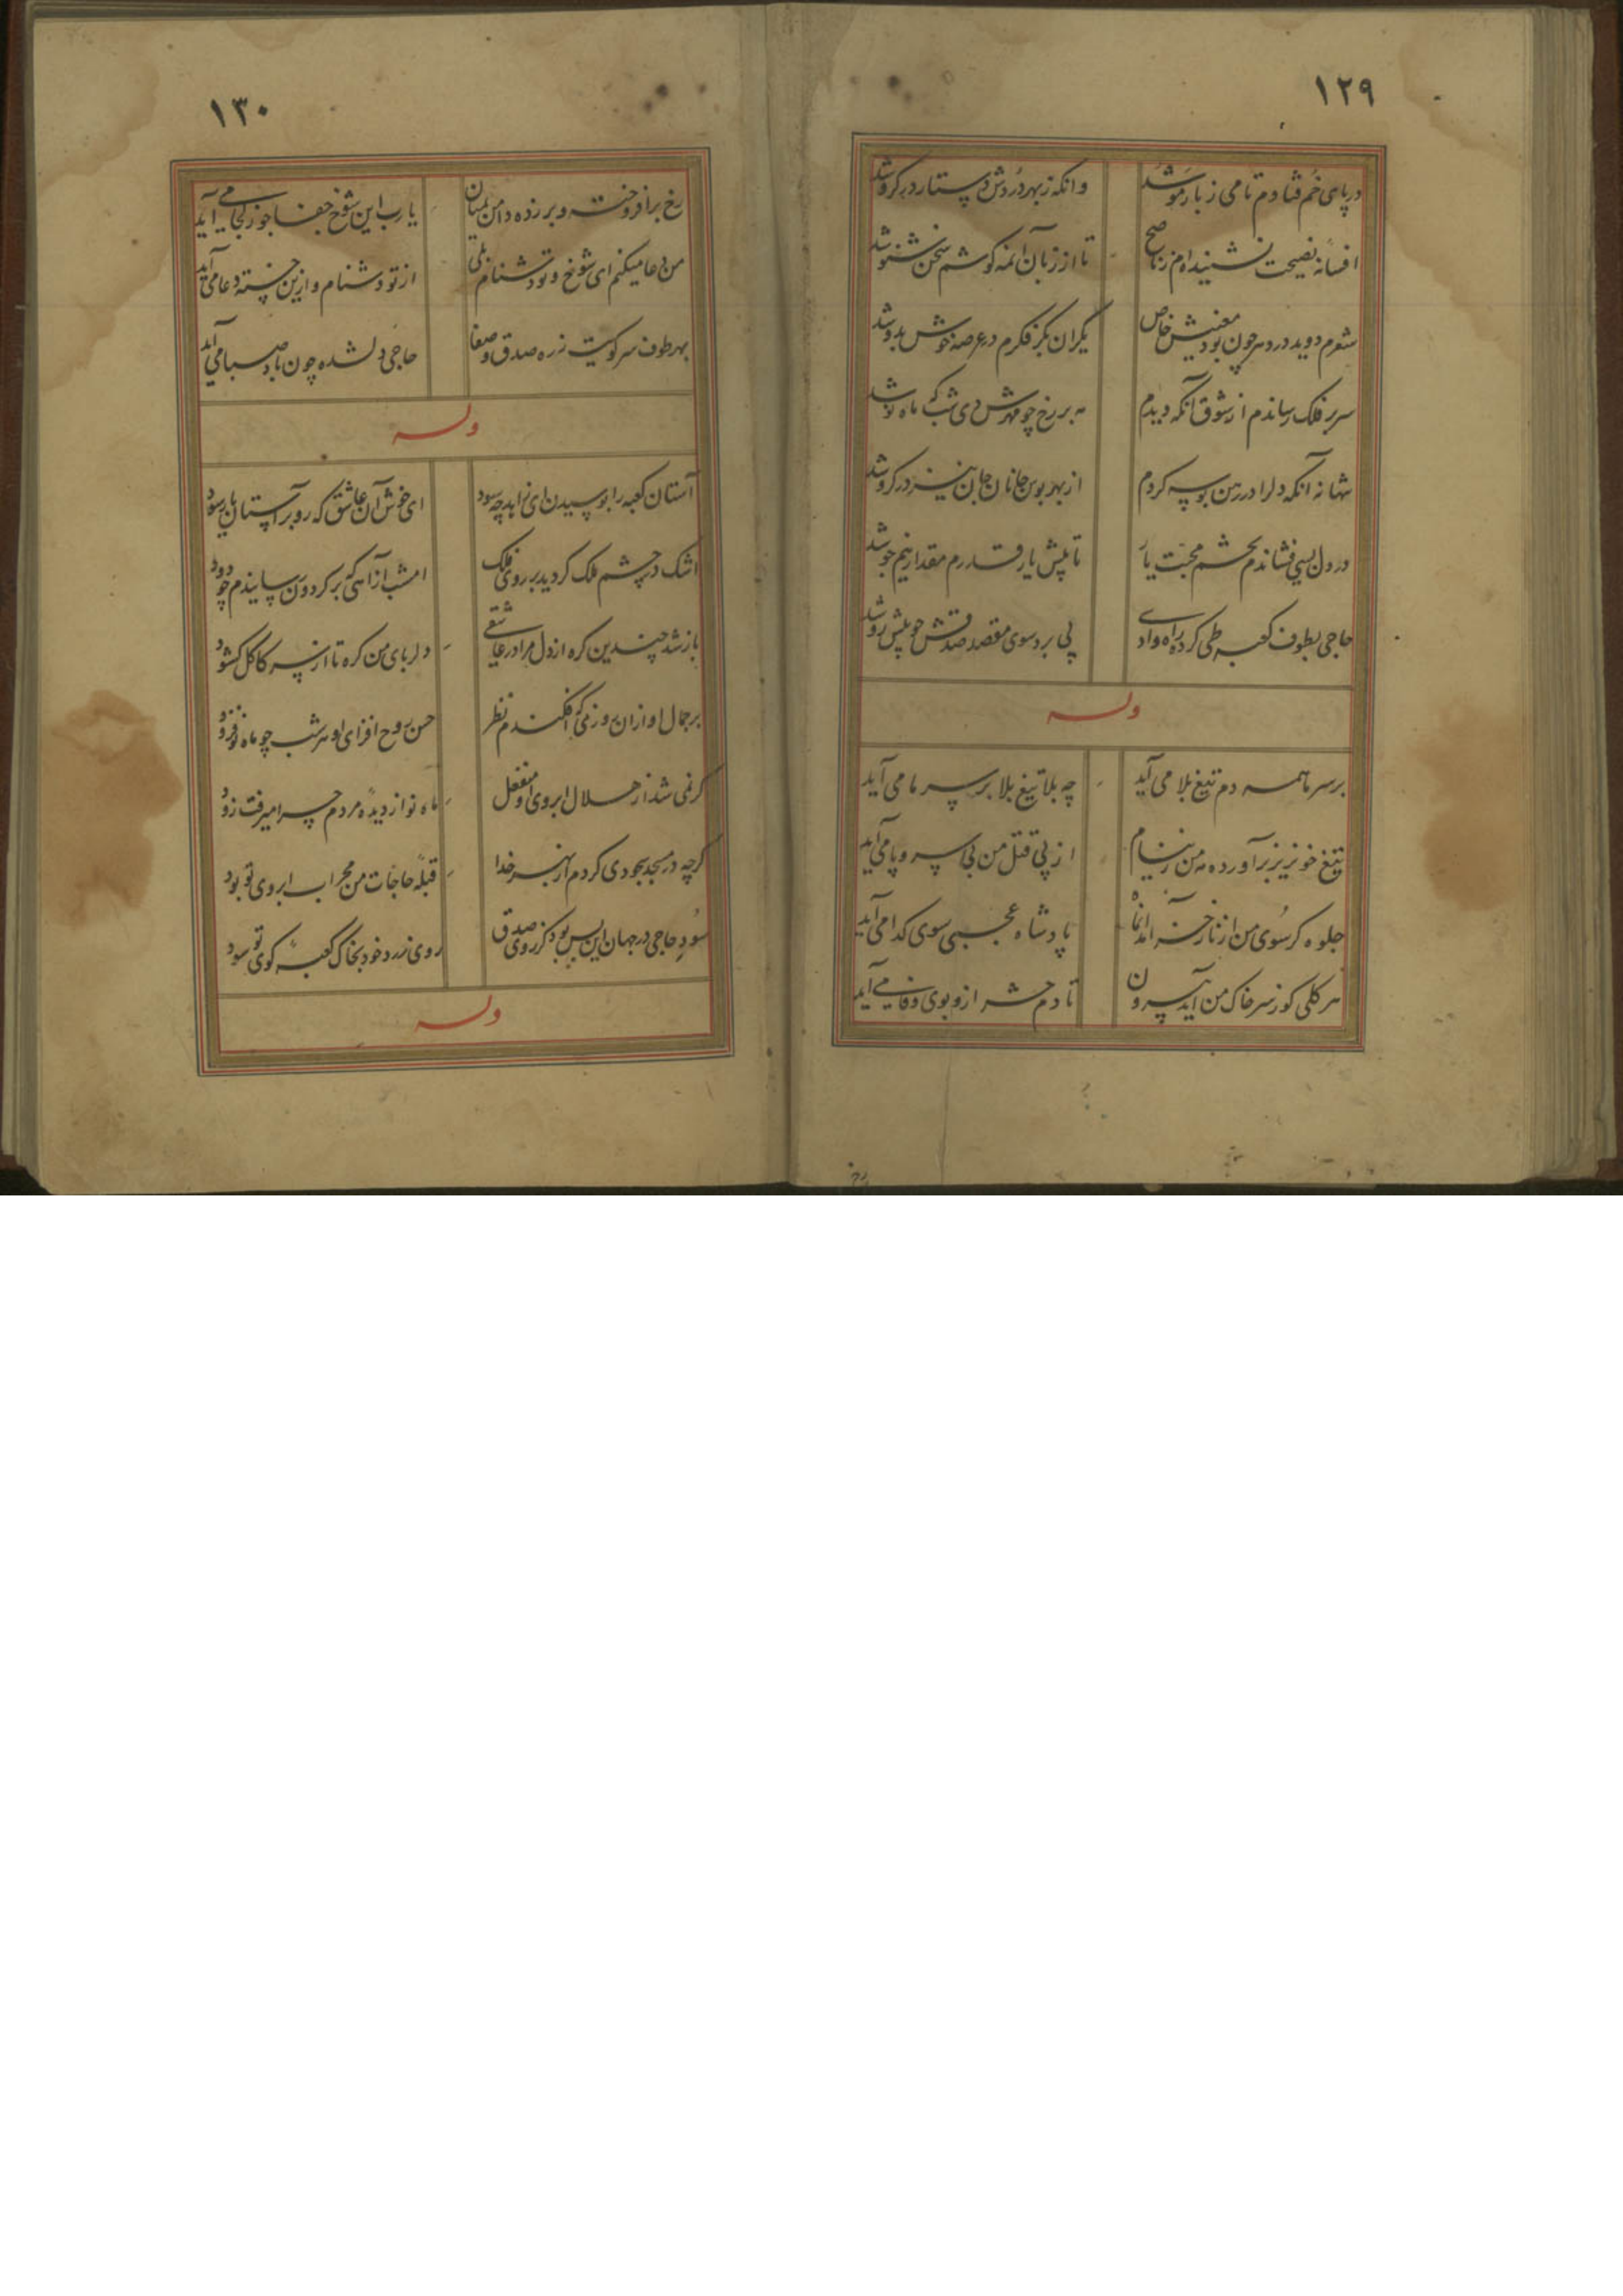 ۱۲۹
در پای خم فتادم تا می ز بار موشد وانکه زبهر دردش دستار در کروشد
افسانه نصیحت نشنیده‌ام ز ناصح تا از زبان آنمه کوشم سخن شنو شد
شعرم دوید در دهر چون بود معنیش خاص یکران بکر فکرم در عرصه خوش بدو شد
سر بر فلک رساندم از شوق آنکه دیدم مه بر رخ چو مهرش دی شب که ماه نو شد
شهانه آنکه دلرا در رهن بوسه کردم از بهر بوس جانان جان نیز در کرو شد
در دل بسی فشاندم تخم محبت یار تا پیش یار قدرم مقدار نیم جو شد
حاجی بطوف کعبه طی کرده راه وادی پی برد سوی مقصد صدقش چو پیش رو شد
وله
بر سر ما همه دم تیغ بلا می آید چه بلا تیغ بلا بر سر ما می آید
تیغ خونریز برآورده مه من ز نیام از پی قتل من بی سر و پا می آید
جلوه کر سوی من از ناز خرامد پادشاه عجبی سوی کدا می آید
هر کلی کو ز سر خاک من آید بیرون تا دم حشر ازو بوی وفا می آید
۱۳۰
رخ برافروخته و بر زده دامن بمیان یارب این شوخ جفا جو ز کجا می آید
من دعا میکنم ای شوخ و تو دشنام از تو دشنام و ازین خسته دعا می آید
بهر طوف سر کویت ز ره صدق و صفا حاجی دلشده چون باد صبا می آید
وله
آستان کعبه را بوسیدن ای زاهد چه سود ای خوش آن عاشق که رو بر آستان یار سود
اشک در چشم ملک کردید بر روی فلک امشب از آهی که بر کردون رسانیدم چو دود
باز شد چندین کره از دل مرا در عاشقی دلربای من کره تا از سر کاکل کشود
بر جمال او از ان روزی که افکندم نظر حسن روح افزای او هر شب چو ماه نو فزود
کر نمی شد از هلال ابروی او منفعل ماه نو از دیده مردم چرا میرفت زود
کرچه در مسجد سجودی کردم از بهر خدا قبله حاجات من محراب ابروی تو بود
سود حاجی در جهان این بس بود کز روی صدق روی زرد خود بخاک کعبه کوی تو سود
وله
رخ